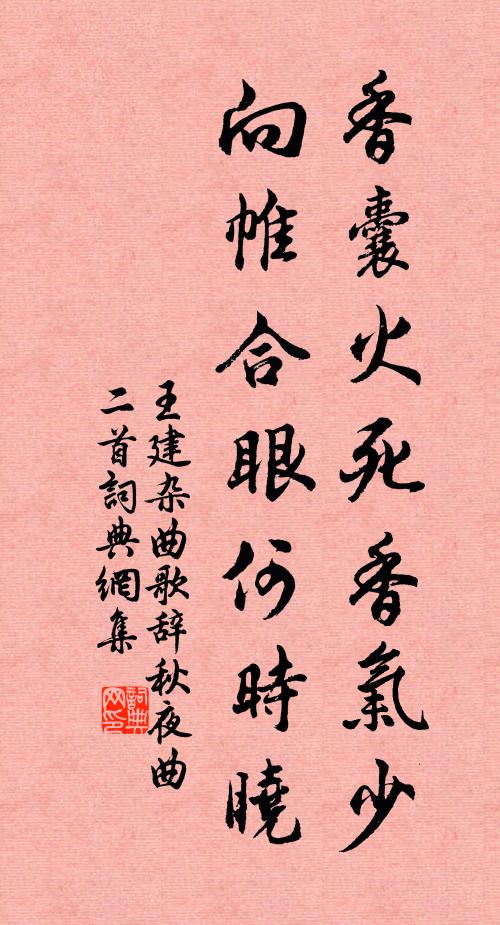 香囊火死香氣少
向帷合眼何時曉
王建杂曲歌辞秋夜曲
二首詞典網集
詞典网印